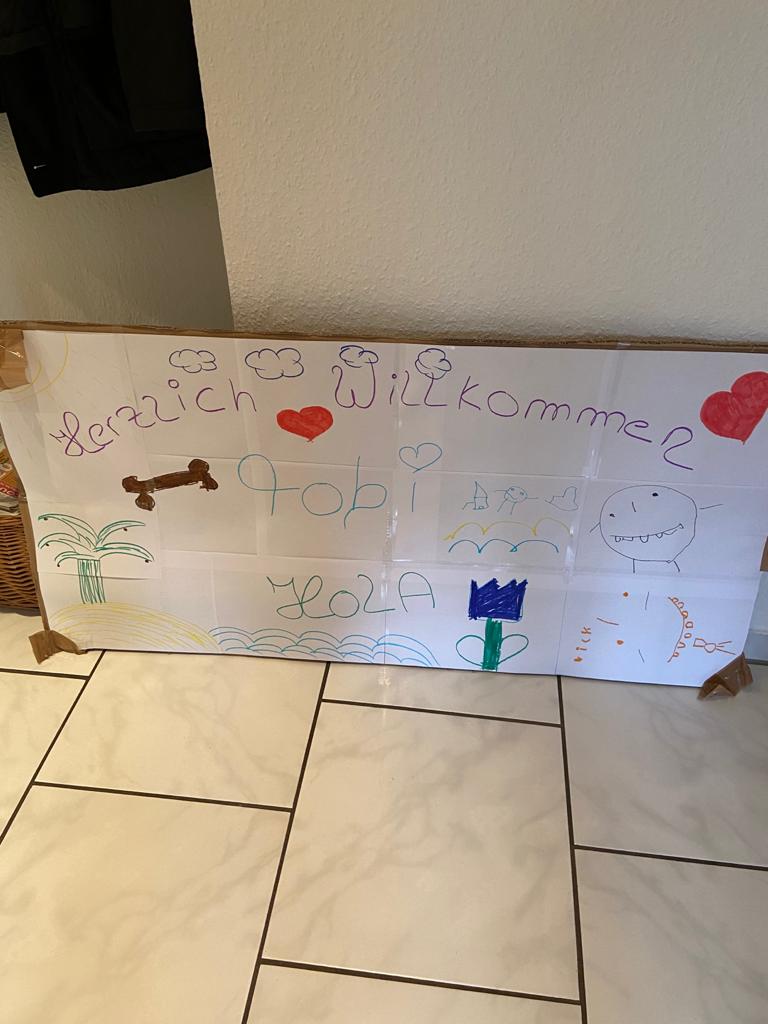 Herzlich Willkommen
Tobi
HOLA